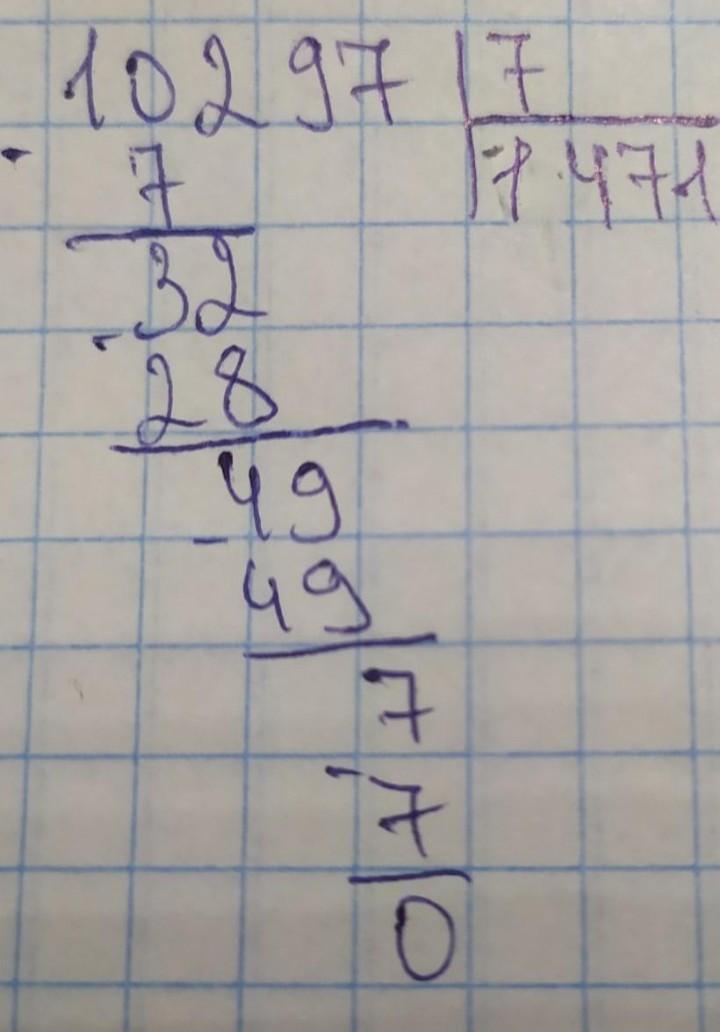 10297 7
- 7 1471
32
- 28
49
- 49
7
- 7
0